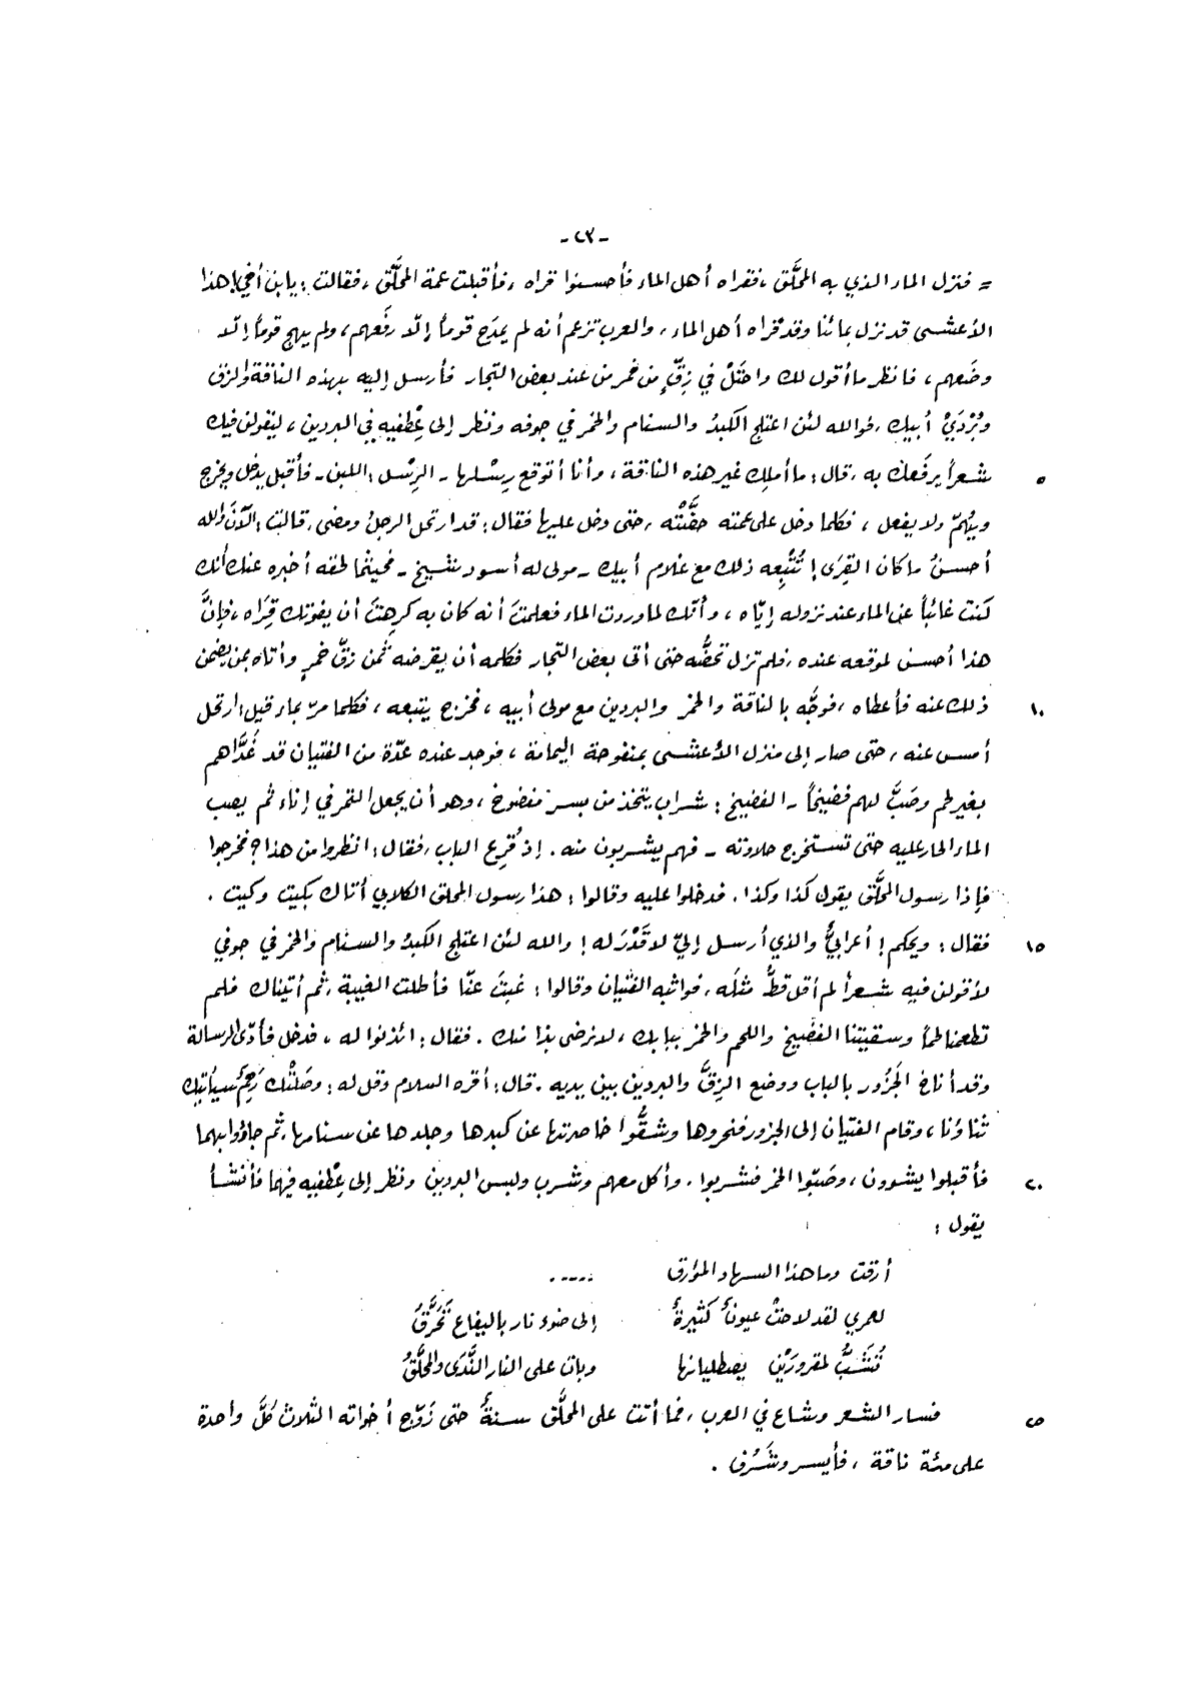 -٢٣-
= فنزل الماء الذي به المحلَّق ، فقراه أهل الماء فأحسنوا قراه ، فأقبلت عمة المحلَّق ، فقالت : يا بن أخي ! هذا
الأعشى قد نزل بمائنا وقد قراه أهل الماء ، والعرب تزعم أنه لم يمدح قوماً إلّا رفَعهم ، ولم يهج قوماً إلّا
وضَعهم ، فانظر ما أقول لك واحتَلْ في زِقٍّ من خمر من عند بعض التجار فأرسل إليه بهذه الناقة والزق
وبُرْدَيْ أبيك ، فوالله لئن اعتلج الكبدُ والسنام والخمر في جوفه ونظر إلى عِطْفيه في البردين ، ليقولن فيك
٥ شعراً يرفَعك به ، قال : ما أملك غير هذه الناقة ، وأنا أتوقع رِسْلها - الرِسْل : اللبن - فأقبل يدخل ويخرج
ويَهُمّ ولا يفعل ، فكلما دخل على عمته حضَّتْه ، حتى دخل عليها فقال : قد ارتحل الرجل ومضى ، قالت : الآنَ والله
أحسنُ ما كان القِرَى ! تُتْبِعه ذلك مع غلام أبيك - مولى له أسود شيخ - فحيثما لحقه أخبره عنك أنك
كنت غائباً عن الماء عند نزوله إيّاه ، وأنّك لما وردت الماء فعلمتَ أنه كان به كرهتَ أن يفوتك قِرَاه ، فإنَّ
هذا أحسن لموقعه عنده ، فلم تزل تحضُّه حتى أتى بعض التجار فكلمه أن يقرضه ثمن زقّ خمر وأتاه بمن يضمن
١٠ ذلك عنه فأعطاه ، فوجَّه بالناقة والخمر والبردين مع مولى أبيه ، فخرج يتبعه ، فكلما مرّ بماء قيل : ارتحل
أمس عنه ، حتى صار إلى منزل الأعشى بمنفوحة اليمامة ، فوجد عنده عدّة من الفتيان قد غَدَّاهم
بغير لحم وصَبَّ لهم فضيخاً - الفضيخ : شراب يتخذ من بسر مفضوخ ، وهو أن يجعل التمر في إناء ثم يصب
الماء الحار عليه حتى تستخرج حلاوته - فهم يشربون منه . إذ قُرع الباب ، فقال : انظروا من هذا ؟ فخرجوا
فإذا رسول المحلَّق يقول كذا وكذا . فدخلوا عليه وقالوا : هذا رسول المحلق الكلابي أتاك بكيت وكيت .
١٥ فقال : ويحكم ! أعرابيٌّ والذي أرسل إليّ لا قَدْرَ له ! والله لئن اعتلج الكبدُ والسنام والخمر في جوفي
لأقولن فيه شعراً لم أقل قطُّ مثلَه ، فواثبه الفتيان وقالوا : غبتَ عنّا فأطلت الغيبة ، ثم أتيناك فلم
تطعمنا لحماً وسقيتنا الفضيخ واللحم والخمر ببابك ، لا نرضى بذا منك . فقال : ائذنوا له ، فدخل فأدّى الرسالة
وقد أناخ الجَزُور بالباب ووضع الزِقَّ والبردين بين يديه . قال : أقره السلام وقل له : وصَلتْك رَحِمٌ سيأتيك
ثناؤنا ، وقام الفتيان إلى الجزور فنحروها وشقُّوا خاصرتها عن كبدها وجلدها عن سنامها ، ثم جاؤوا بهما
٢٠ فأقبلوا يشوون ، وصَبّوا الخمر فشربوا ، وأكل معهم وشرب ولبس البردين ونظر إلى عِطْفيه فيهما فأنشأ
يقول :
أرقت وما هذا السهاد المؤرق .....
لعمري لقد لاحتْ عيونٌ كثيرةٌ إلى ضوء نار باليفاع تَحَرَّقُ
تُشَبُّ لمقرورَيْن يصطليانها وبات على النار النَّدَى والمحلَّقُ
٢٥ فسار الشعر وشاع في العرب ، فما أتت على المحلَّق سنةٌ حتى زَوّج أخواته الثلاث كلَّ واحدة
على مئة ناقة ، فأيسر وشَرُف .